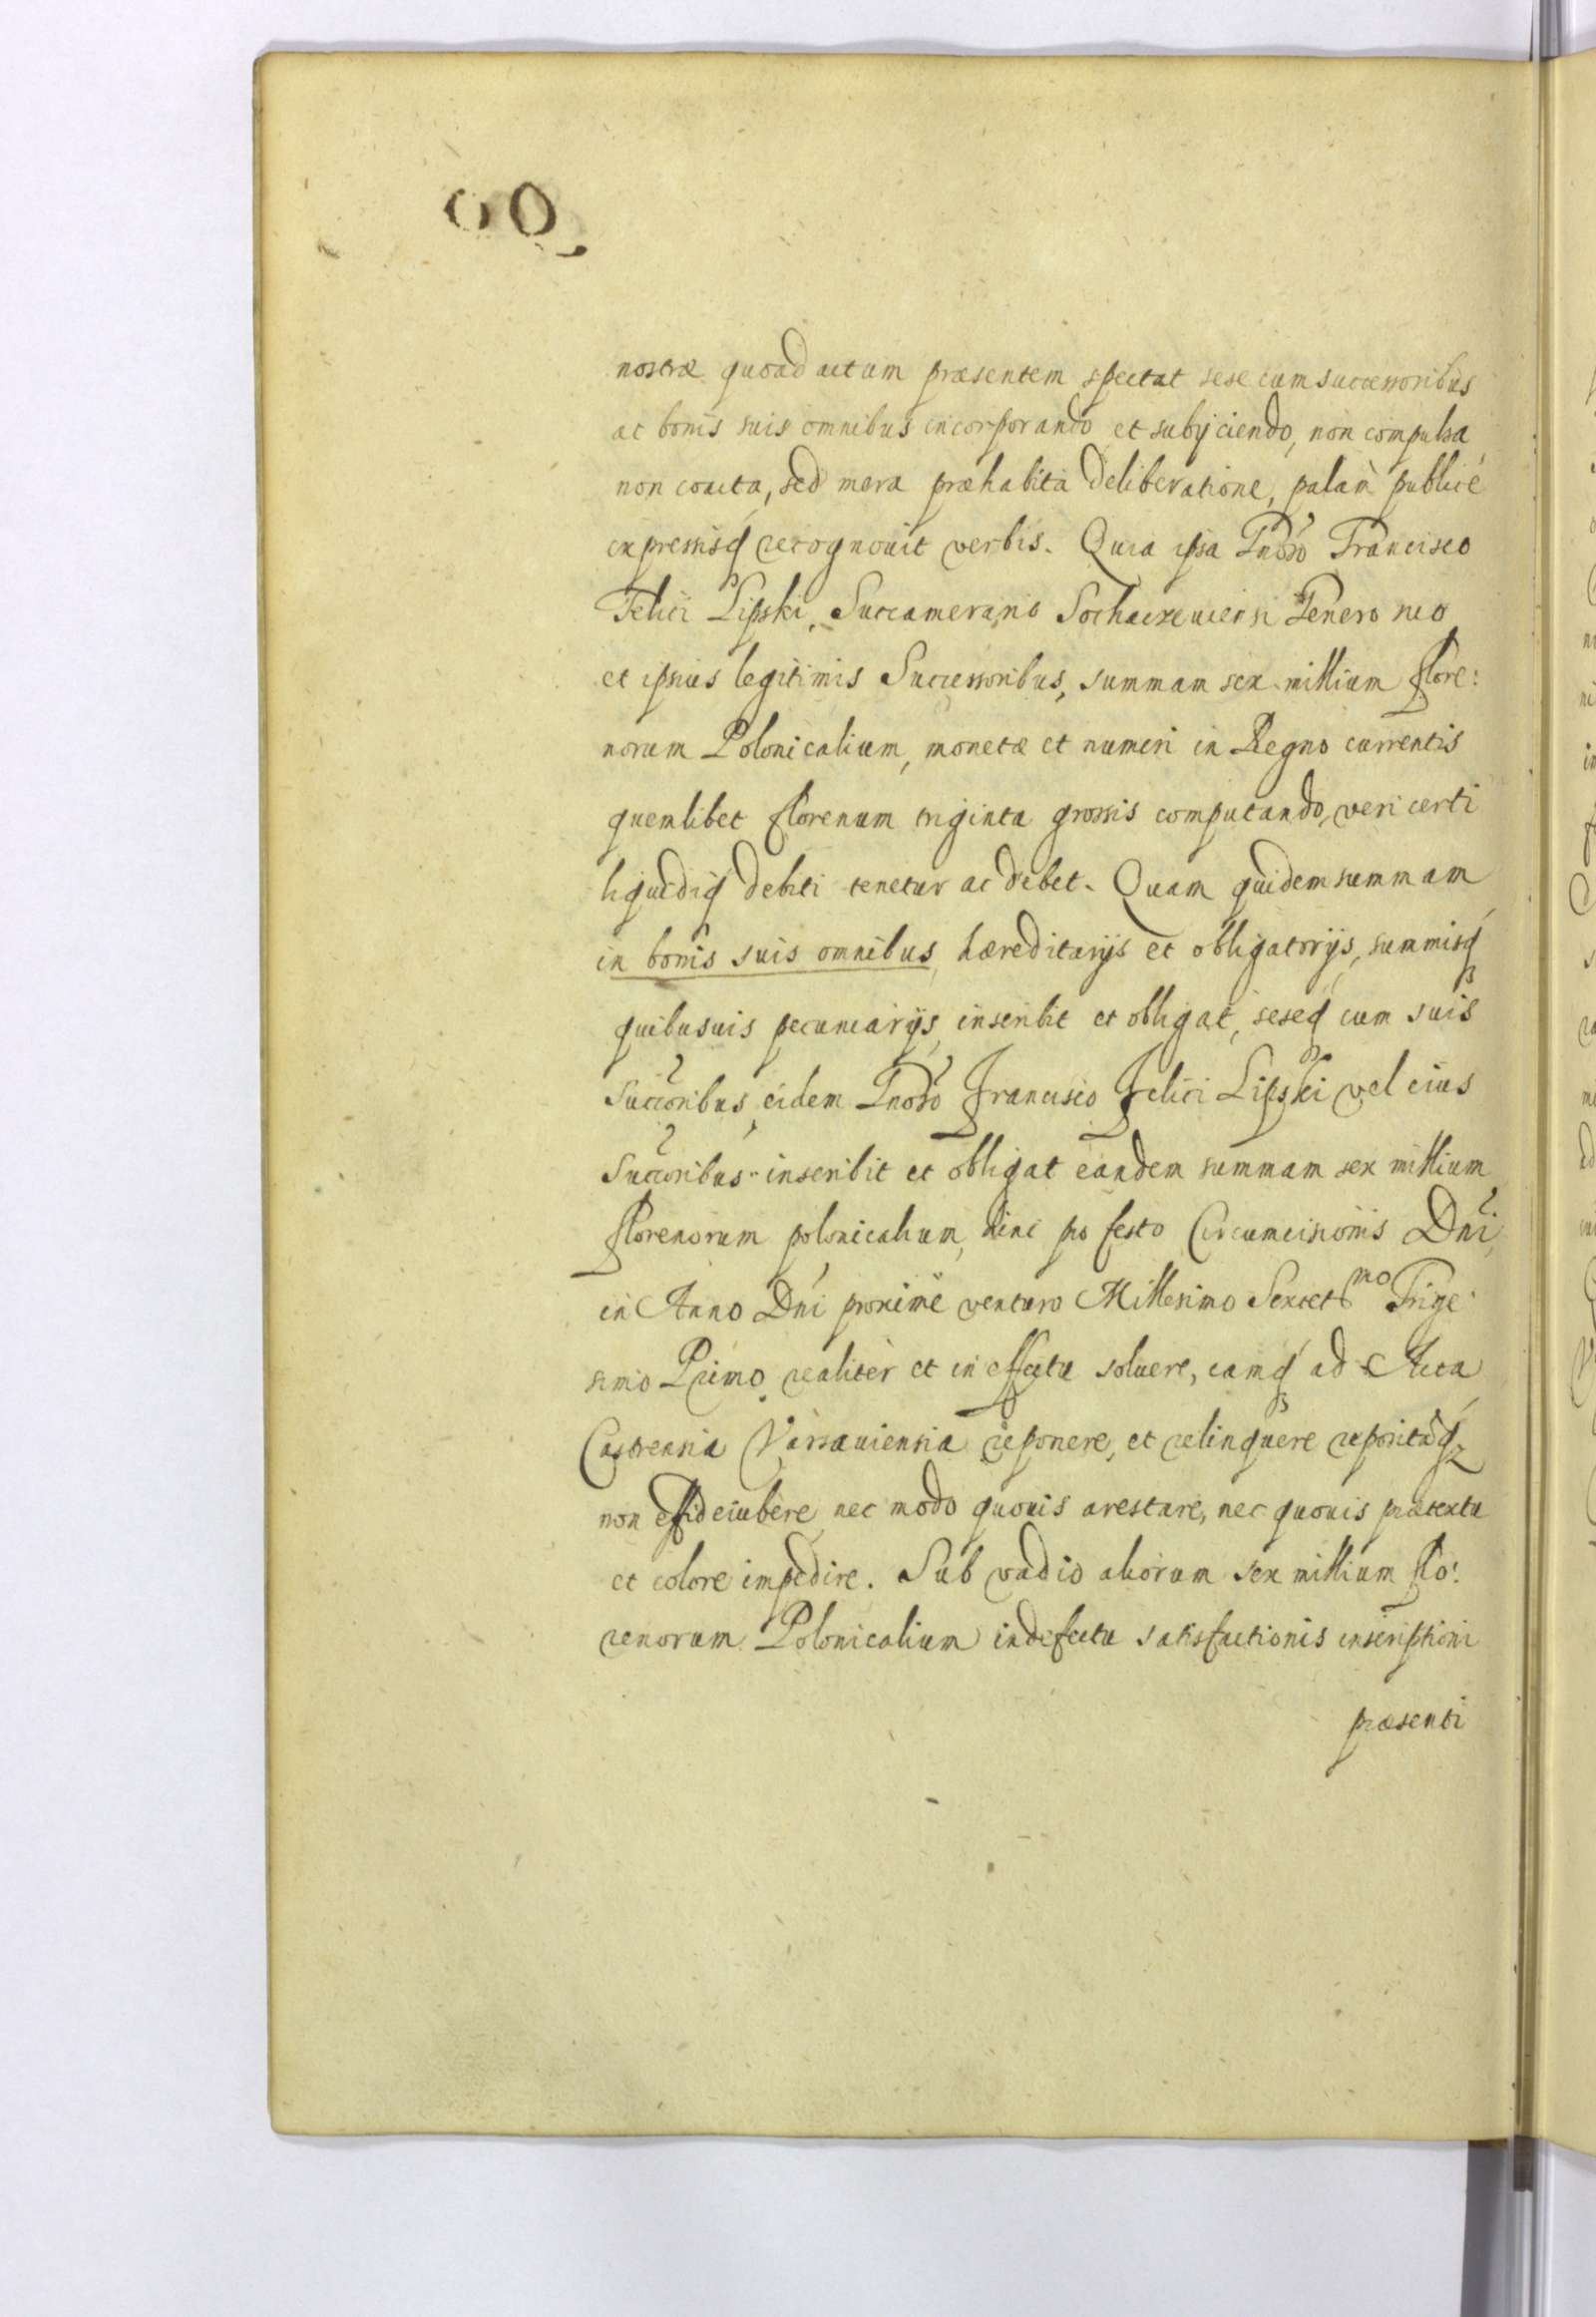 nostræ quoad actum præsentem spectat sese cum successoribus
ac bonis suis omnibus incorporando et subijciendo, non compulsa
non coacta, sed mera præhabita deliberatione, palam publicè
expressisq recognouit verbis. Quia ipsa Francisco
Felici Lipski, Succamerario Sochaczeuiensi Genero suo
et ipsius legitimis Successoribus, summam sex millium flore:
norum Polonicalium, monetæ et numeri in Regno currentis
quemlibet florenum triginta grossis computando, veri certi
liquidiq debiti tenetur ac debet. Quam quidem summam
in bonis suis omnibus hæreditarijs et obligatorijs, summisq
quibusuis pecuniarijs, inscribit et obligat, seseq cum suis
Succoribus, eidem Francisco Felici Lipski vel eius
Succoribus inscribit et obligat eandem summam sex millium
florenorum polonicalium, hinc pro festo Circumcisionis Dni
in Anno Dni proximè venturo Millesimo Sexcent^mo Trige
simo Primo realitèr et in effectu soluere, eamq ad Acta
Castrensia Varsauiensia reponere, et relinquere repositaq
non effideiubere nec modo quouis arestare, nec quouis prætextu
et colore impedire. Sub vadio aliorum sex millium flo:
renorum Polonicalium in defectu satisfactionis inscriptioni
præsenti